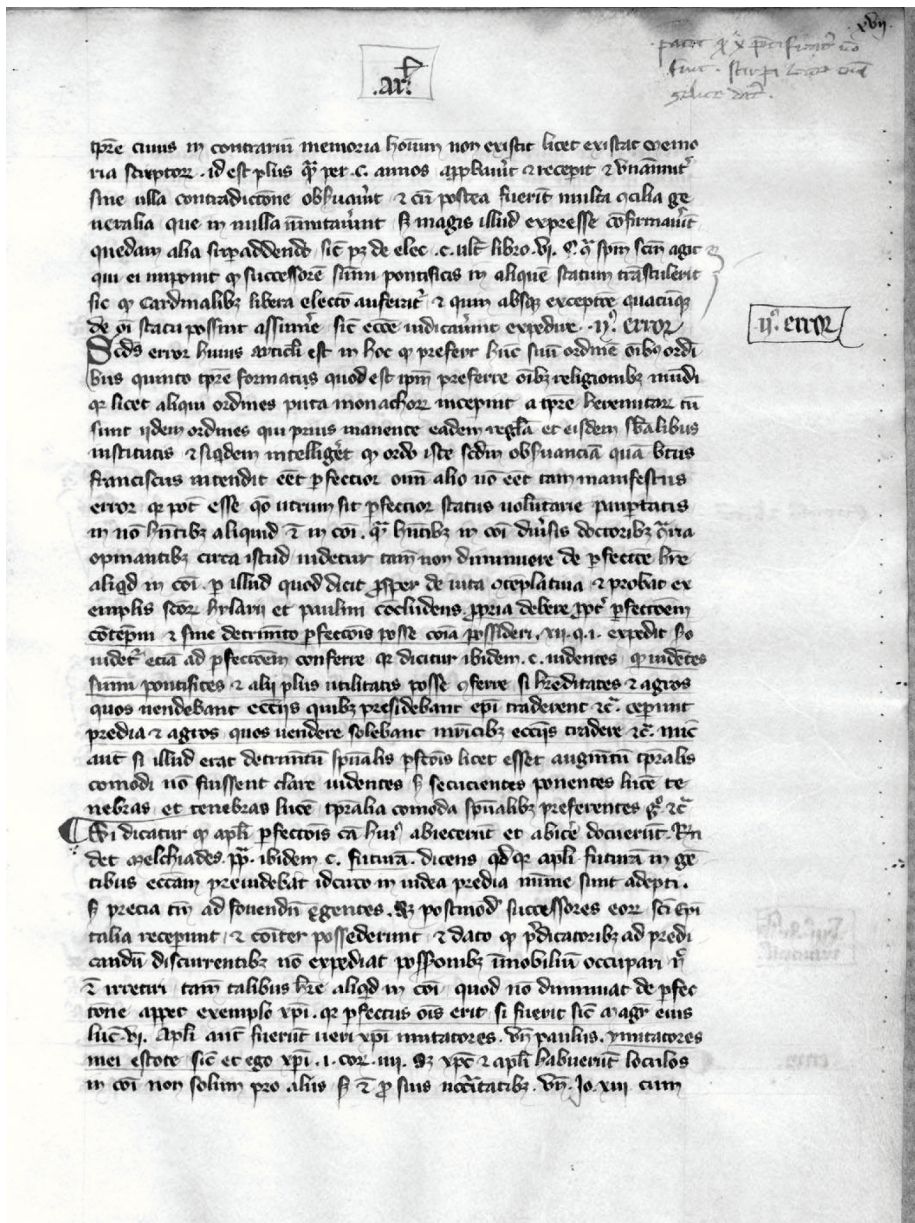 xvij
.ar.
tpre cuius in contrarium memoria hoium non existit licet existat memo
ria scriptor. id est plus qͣ per .c. annos approbauit & recepit & vnanimit
sine ulla contradictione obseruauit & cu postea fuerit multa cōcilia ge
neralia que in nulla imutauerut sꝫ magis illud expresse cōfirmauerūt
quedam alia supaddendo sic pꝫ de elec .c. ult libro .vi. spm scm agit
qui ei imponit qꝫ successorē sūmi pontificis in aliquē statum trāstulerit
sic qꝫ cardinalibꝫ libera electō auferit & quin absqꝫ exceptōe quacūqꝫ
de oi statu possint assume sic ecce iudicauerunt expedire. ijᵘˢ. error
ijᵘˢ. error
Scdꝰ error huius articli est in hoc qꝫ prefert hūc suū ordinē oibꝫ ordi
bus quinto tpre formatis quod est ipm preferre oibꝫ religionibꝫ mūdi
qꝛ licet aliqui ordines puta monachorꝫ inceperint a tpre heremitarꝫ tn
sunt ijdem ordines qui prius manente eadem regla et eisdem sbalibus
institutis & siqdem intelligeret qꝫ ordo iste scdm obseruanciā quā btus
franciscus intendit eēt pfectior omi alio nō eēt tam manifestus
error qꝛ pot esse qō utrum sit pfectior status uolūtarie paupertatis
in nō hntibꝫ aliquid & in coi. qͣ hntibꝫ in coi diuersis doctoribꝫ cōtraria
opinantibꝫ circa istud uidetur tam non diminuere de pfectōe hre
aliqd in coi. p illud quod dicit prosper de uita cōteplatiua & probat ex
emplis scorꝫ hylarii et paulini cōcludens. propria debere ppt pfectōem
cōtepni & sine detrimēto pfectōis posse coia possideri. xii. q. i. expedit sꝫo
uidet eciā ad pfectōem conferre qꝛ dicitur ibidem .c. uidentes qꝫ uidētes
sūmi pontifices & alii plus utilitatis posse cōferre si hreditates & agros
quos uendebant ecciis quibꝫ presidebant epi traderent &c. ceperunt
predia & agros quos uendere solebant mricibꝫ ecciis tradere &c. nūc
aut si illud erat detrimētū spualis pfectōis licet esset augmētū tpralis
comodi nō fuissent clare uidentes sꝫ secucientes ponentes lucē te
nebras et tenebras lucē tpralia comoda spualibꝫ preferentes &c
¶ Si dicatur qꝫ apli pfectōis cā huiꝰ abiecerūt et abicē docuerūt. Rn
det Melchiades. pp. ibidem .c. futurā. dicens qꝛ apli futurā in gē
tibus ecclam preuidebāt idcirco in iudea predia mīme sunt adepti.
sꝫ precia tm ad fouendū egentes. sꝫ postmodū successores eorꝫ sci epi
talia receperunt & cōiter possederunt & dato qꝫ predicatoribꝫ ad predi
candū discurrentibꝫ nō expediat possessionibꝫ īmobiliū occupari
& irretiri tam talibus hre aliqd in coi quod nō diminuat de pfec
tōne apparet exemplo xpi. qꝛ perfectus ois erit si fuerit sic magr eius
luc. vi. Apli aut fuerūt ueri xpi imitatores. vn paulus. ymitatores
mei estote sic et ego xpi. i. cor. iiii. sꝫ xpc & apli habuerūt loculos
in coi non solum pro aliis sꝫ & p suis necessitatibꝫ. vn. Jo. xiii cum